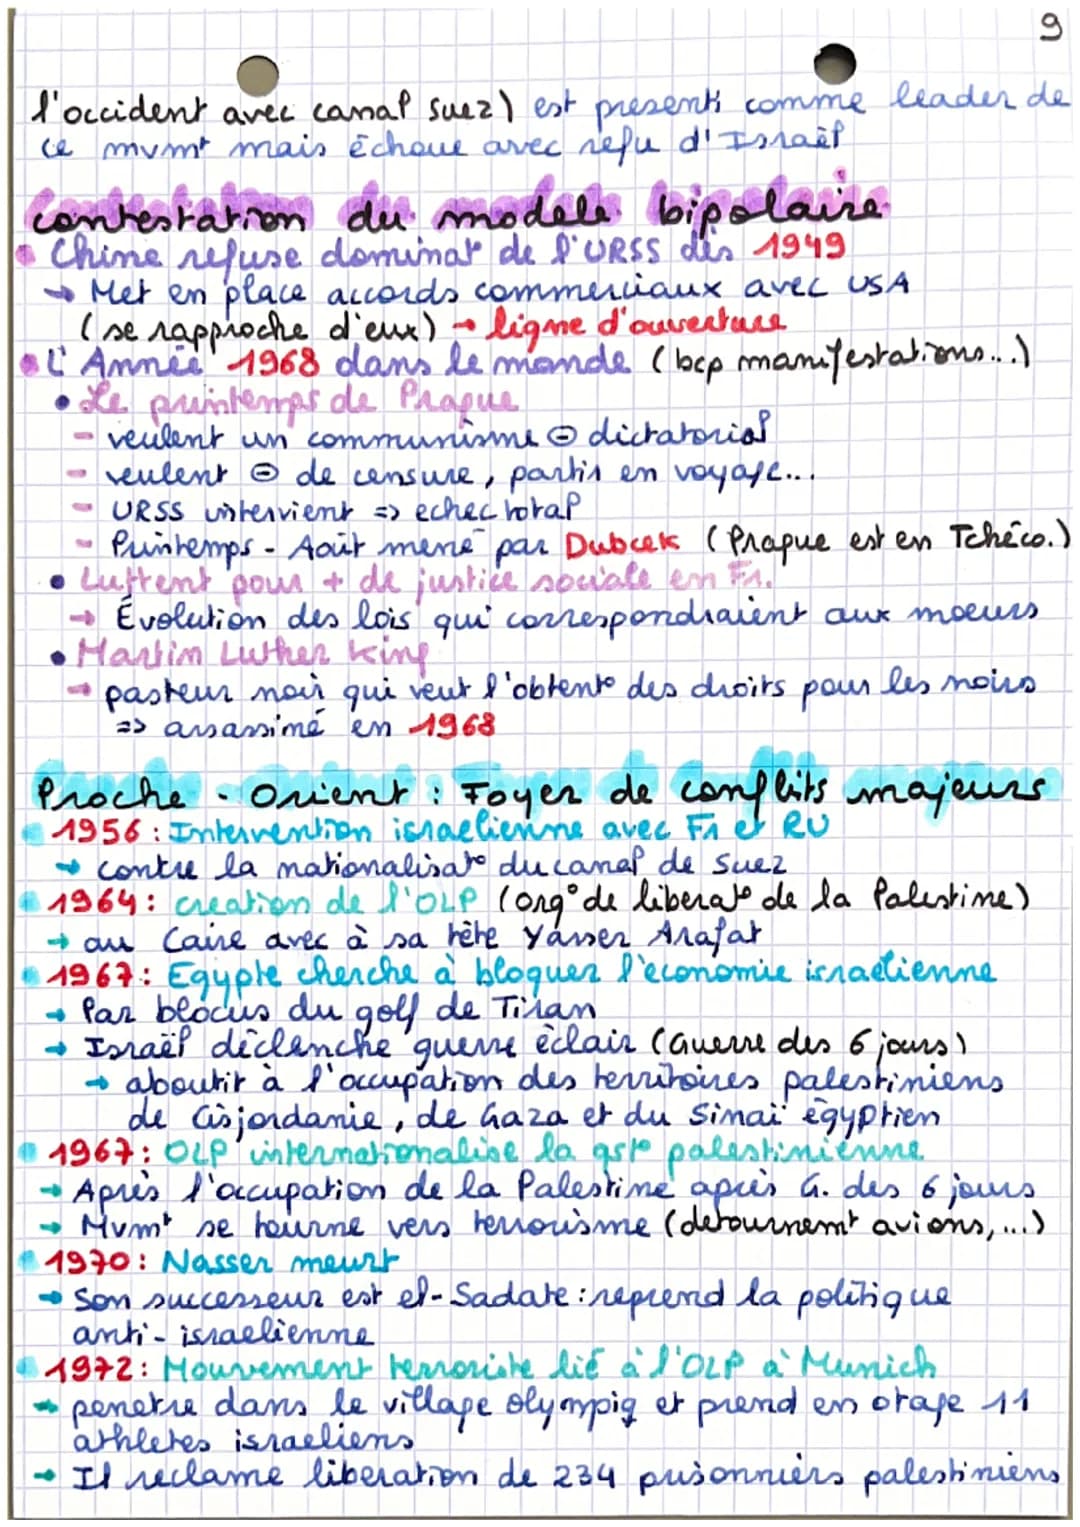 9
l'occident avec canal suez) est présenté comme leader de
ce mvmt mais échoue avec refu d'Israël
contestation du modèle bipolaire
Chine refuse dominat° de l'URSS dès 1949
→ Met en place accords commerciaux avec USA
(se rapproche d'eux) → ligne d'ouverture
L'Année 1968 dans le monde (bcp manifestations...)
• Le printemps de Prague
- veulent un communisme ⊖ dictatorial
- veulent ⊖ de censure, partir en voyage...
- URSS intervient => echec total
- Printemps - Août mené par Dubcek (Prague est en Tchéco.)
• Luttent pour + de justice sociale en Fr.
→ Évolution des lois qui correspondraient aux moeurs
• Martin Luther King
→ pasteur noir qui veut l'obtent° des droits pour les noirs
=> assassiné en 1968
Proche - Orient : Foyer de conflits majeurs
1956 : Intervention israelienne avec Fr et RU
→ contre la nationalisat° du canal de Suez
1964 : creation de l'OLP (org° de liberat° de la Palestine)
→ au Caire avec à sa tête Yasser Arafat
1967 : Egypte cherche à bloquer l'économie israelienne
→ Par blocus du golf de Tiran
→ Israël déclenche guerre éclair (Guerre des 6 jours)
→ aboutit à l'occupation des territoires palestiniens
de Cisjordanie, de Gaza et du Sinaï égyptien
1967 : OLP internationalise la qst° palestinienne
→ Après l'occupation de la Palestine après G. des 6 jours
→ Mvmt se tourne vers terrorisme (detournemt avions, ...)
1970 : Nasser meurt
→ Son successeur est el-Sadate : reprend la politique
anti-israelienne
1972 : Mouvement terroriste lié à l'OLP à Munich
→ penetre dans le village olympiq et prend en otage 11
athletes israeliens
→ Il reclame liberation de 234 prisonniers palestiniens